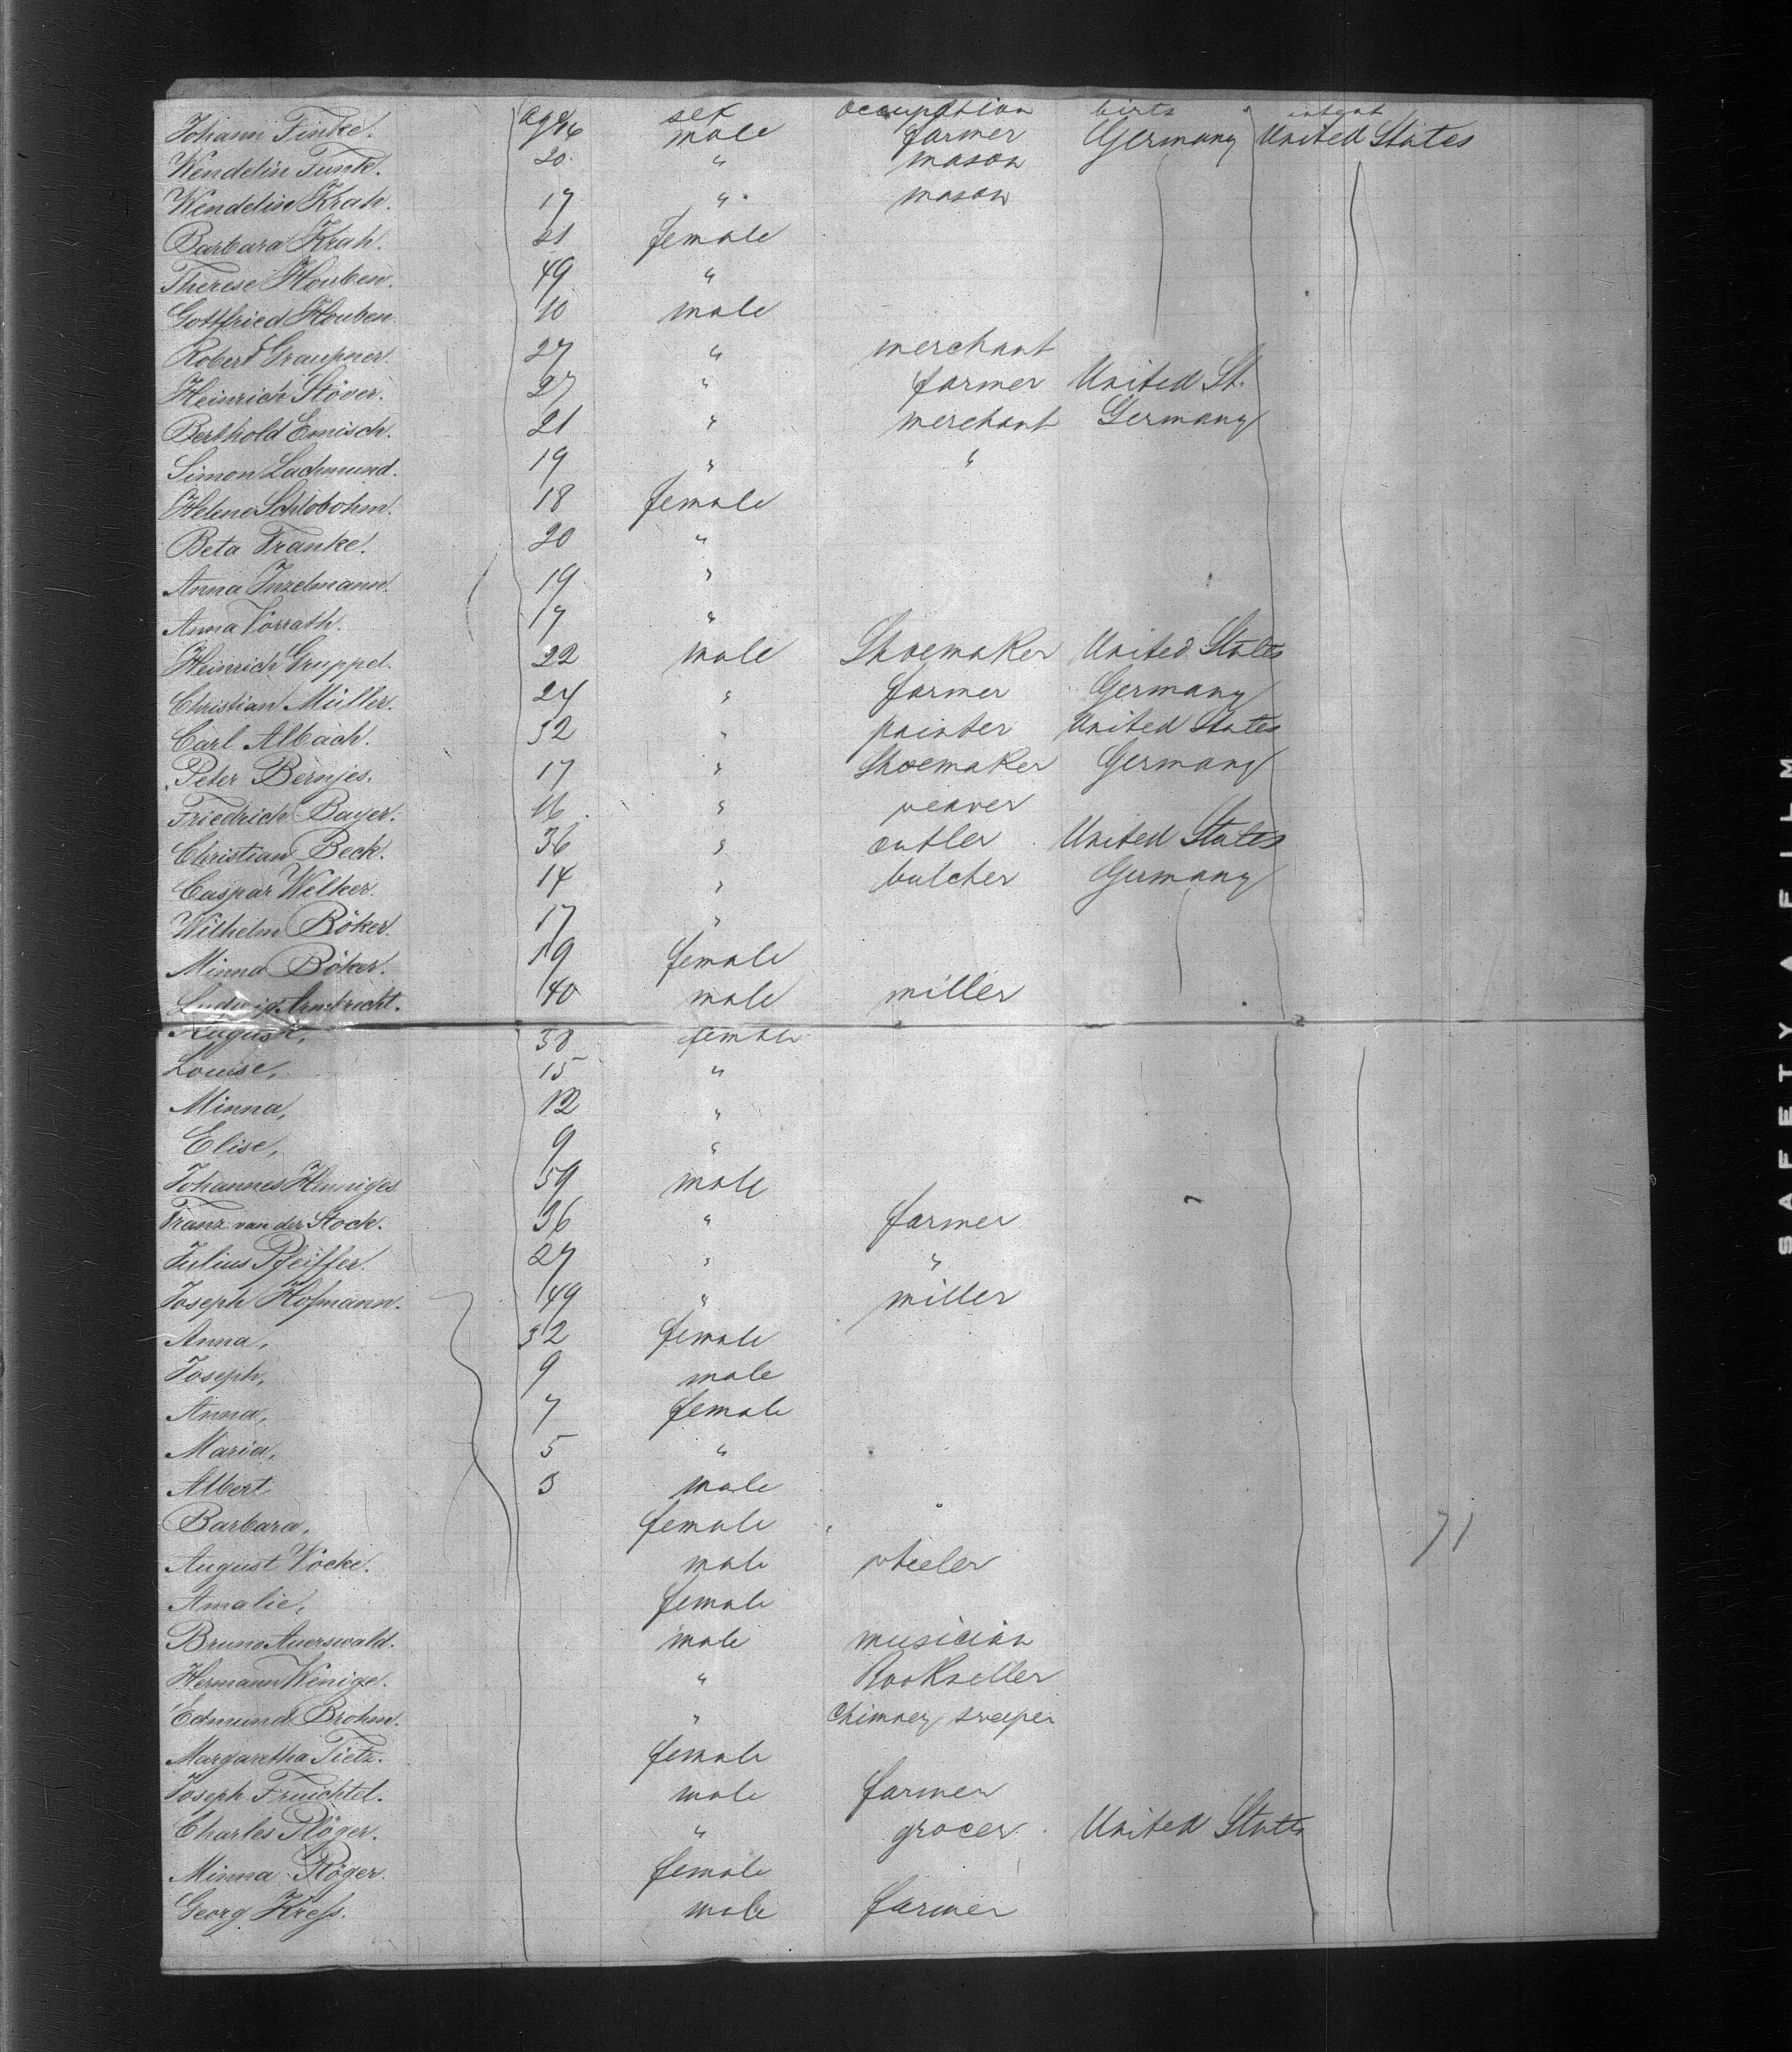 age sex occupation birth intent
Johann Finke. 16 male farmer Germany United States
Wendelin Funk. 20. " mason
Wendelin Krah. 17 " mason
Barbara Krah. 21 female
Therese Houben. 49 "
Gottfried Houben. 10 male
Robert Graupner. 27 " merchant
Heinrich Stöver. 27 " farmer United St.
Berthold Emisch. 21 " merchant Germany
Simon Lachmund. 19 " "
Helene Schlobohm. 18 female
Beta Franke. 20 "
Anna Inzelmann. 19 "
Anna Vorrath. 17 "
Heinrich Gruppel. 22 male Shoemaker United States
Christian Müller. 24 " farmer Germany
Carl Albach. 32 " painter United States
Peter Bernjes. 17 " Shoemaker Germany
Friedrich Bayer. 16 " weaver
Christian Beck. 36 " cutler United States
Caspar Welker. 14 " butcher Germany
Wilhelm Böker. 17 "
Minna Böker. 19 female
Ludwig Armbrecht. 40 male miller
August, 38 female
Louise, 15 "
Minna, 12 "
Elise, 9 "
Johannes Henniges 59 male
Franz van der Stock. 36 " farmer
Julius Pfeiffer. 27 " "
Joseph Hofmann. 49 " miller
Anna, 32 female
Joseph, 9 male
Anna, 7 female
Maria, 5 "
Albert 3 male
Barbara, female
71
August Vocke. male wheeler
Amalie, female
Bruno Auerswald. male musician
Hermann Winige. " Bookseller
Edmund Brohm. " Chimney sweeper
Margaretha Tietz. female
Joseph Fruichtel. male farmer
Charles Plöger. " grocer United States
Minna Plöger. female
Georg Kreß. male farmer
SAFETY FILM